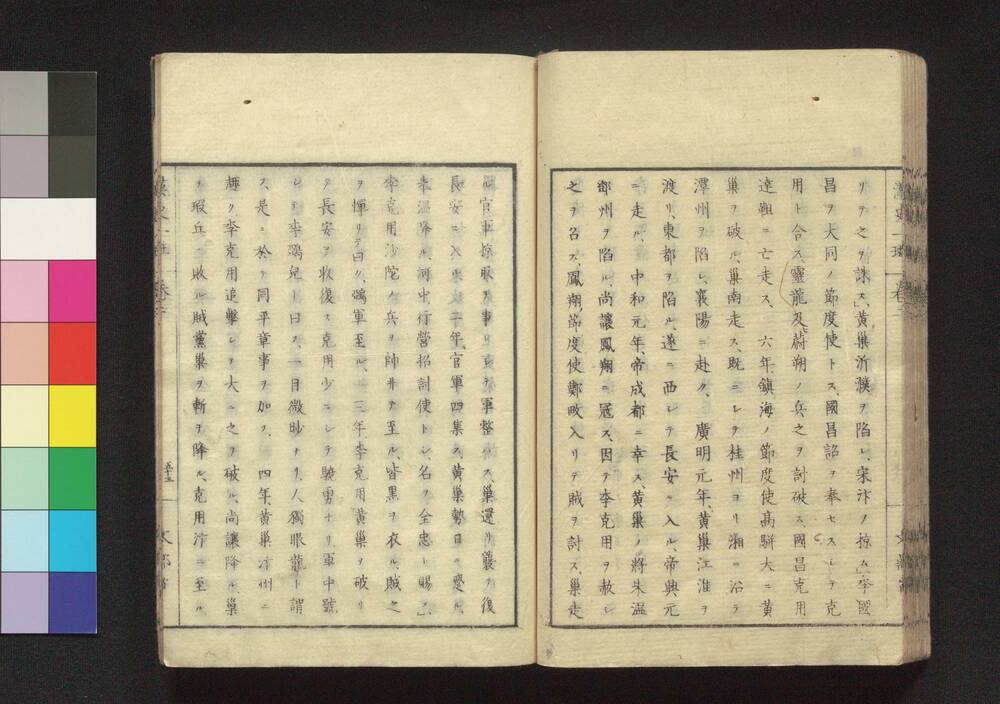 リテ之ヲ誅ス、黄巢沂濮ヲ陷レ、宋汴ヲ掠ム、李國
昌ヲ大同ノ節度使トス、國昌詔ヲ奉セスシテ克
用ト合ス、靈龍及蔚朔ノ兵之ヲ討破ス、國昌克用
達靼ニ亡走ス、六年鎮海ノ節度使高駢大ニ黄
巢ヲ破ル、巢南走ス、既ニシテ桂州ヨリ湘ニ沿テ
潭州ヲ陷レ、襄陽ニ赴ク、廣明元年、黄巢江淮ヲ
渡リ、東都ヲ陷ル、遂ニ西シテ長安ニ入ル、帝興元
ニ走ル、中和元年、帝成都ニ幸ス、黄巢ノ將朱温
鄧州ヲ陷ル、尚讓鳳翔ニ冦ス、因テ李克用ヲ赦シ
之ヲ召ス、鳳翔節度使鄭畋入リテ賊ヲ討ス、巢走
官軍掠取ヲ事トシテ軍整ハス、巢還リ襲テ復
長安ニ入ル、二年、官軍四集ス、黄巢勢日ニ蹙ル、
朱温降ル、河中行營招討使トシ、名ヲ全忠ト賜フ、
李克用沙陀ノ兵ヲ帥井テ至ル、皆黒ヲ衣ル、賊之
ヲ憚リテ曰ク、鴉軍至ル、三年、李克用黄巢ヲ破リ
テ長安ヲ收復ス、克用少ニシテ驍勇ナリ、軍中號
シテ李鴉兒ト曰ス、一目微眇ナリ、人獨眼龍ト謂
ス、是ニ於テ同平章事ヲ加フ、四年、黄巢汴州ニ
趣ク、李克用追撃シテ大ニ之ヲ破ル、尚讓降ル、巢
ヲ瑕丘ニ敗ル、賊黨巢ヲ斬テ降ル、克用汴ニ至ル、
五十五